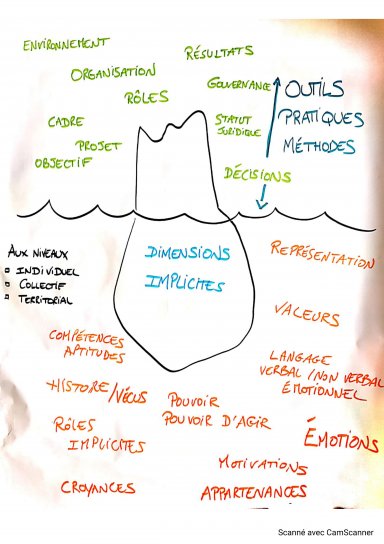 ENVIRONNEMENT
RÉSULTATS
ORGANISATION
GOUVERNANCE
RÔLES
OUTILS
PRATIQUES
MÉTHODES
CADRE
STATUT
JURIDIQUE
PROJET
OBJECTIF
DÉCISIONS
AUX NIVEAUX
INDIVIDUEL
COLLECTIF
TERRITORIAL
DIMENSIONS
IMPLICITES
REPRÉSENTATION
VALEURS
COMPÉTENCES
APTITUDES
LANGAGE
VERBAL / NON VERBAL
ÉMOTIONNEL
HISTOIRE/VÉCUS
POUVOIR
POUVOIR D'AGIR
RÔLES
IMPLICITES
ÉMOTIONS
MOTIVATIONS
CROYANCES
APPARTENANCES
Scanné avec CamScanner